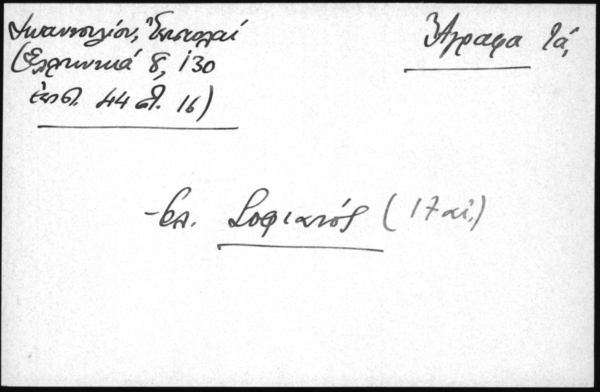 Ἄγραφα Τά,
Ἐπιστολαί
(Ἑλληνικά 8, 130
ἐπιστ. 44 στ. 16)
- βλ. Σοφιανός (17 αἰ.)